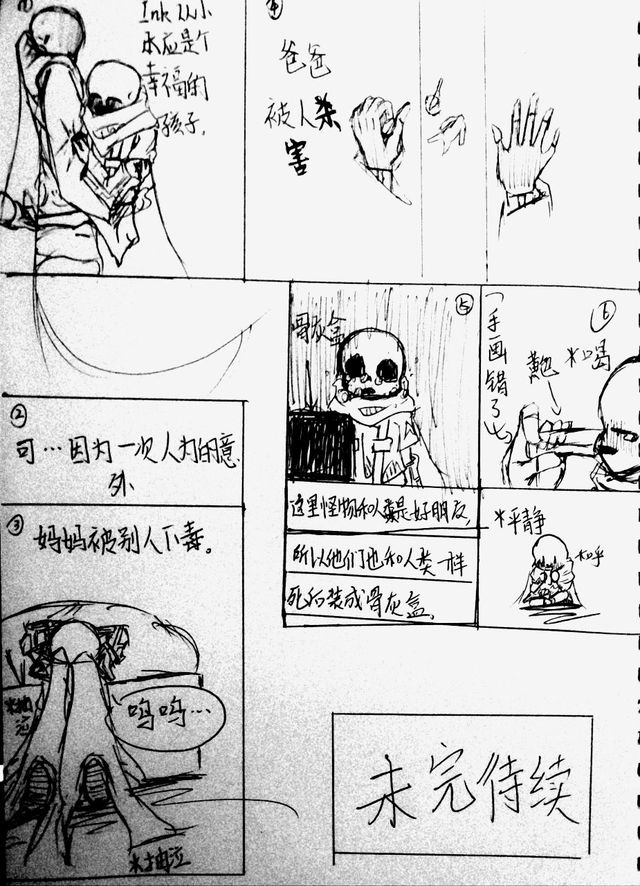 ①
Ink从小
本应是个
幸福的
孩子,
②
可…因为一次人为的意
外
③
妈妈被别人下毒。
*抽泣
呜呜…
*抽泣
④
爸爸
被人杀
害
⑤
骨灰盒
这里怪物和人类是好朋友,
所以他们也和人类一样
死后装成骨灰盒,
⑥
(手画错了
*喝
*平静
未完待续